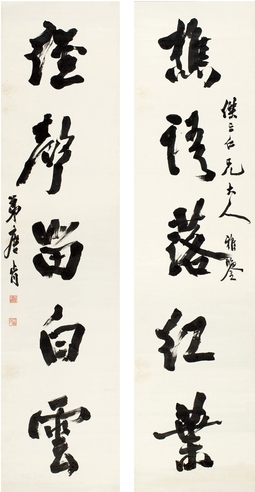 傑三仁兄大人雅鑒
樵語落紅葉
經聲留白雲
弟唐肯